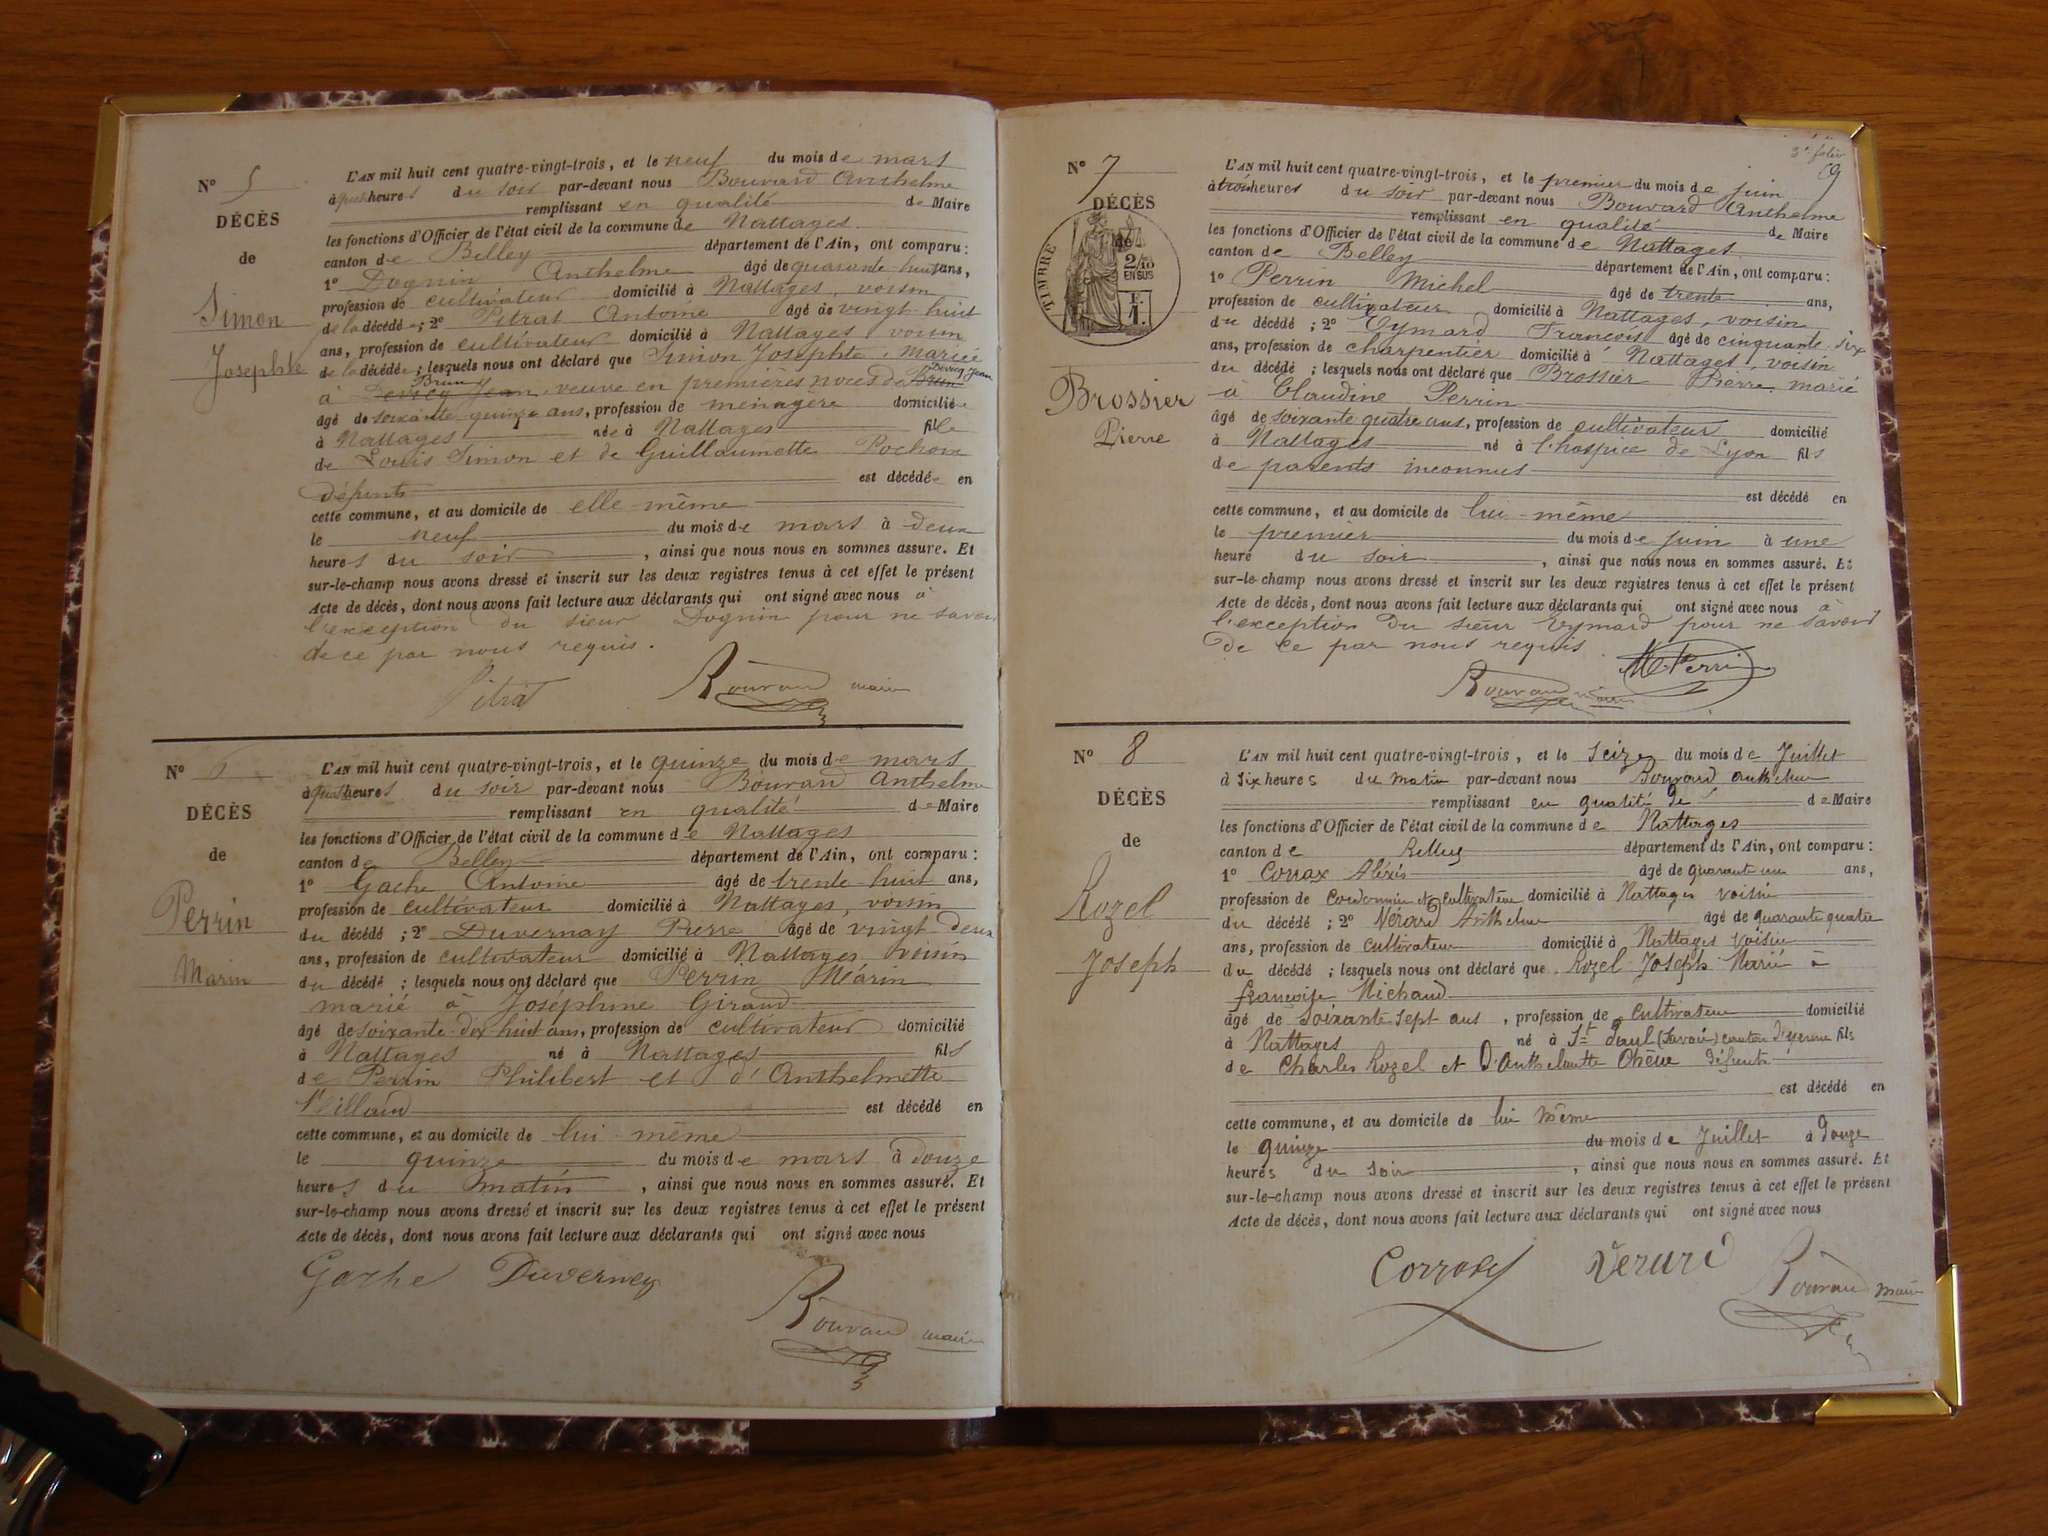 N° 5
DÉCÈS
de
Simon
Josephte
L'AN mil huit cent quatre-vingt-trois, et le neuf du mois de mars
à heures du soir par-devant nous Bouvard Anthelme
remplissant en qualité de Maire
les fonctions d'Officier de l'état civil de la commune de Nattages
canton de Belley département de l'Ain, ont comparu :
1° Dognin Anthelme âgé de quarante-huit ans,
profession de cultivateur domicilié à Nattages, voisin
de la décédée ; 2° Pitrat Antoine âgé de vingt-huit
ans, profession de cultivateur domicilié à Nattages voisin
de la décédée ; lesquels nous ont déclaré que Simon Josephte, mariée
à Brun Jean, veuve en premières noces de
âgé de soixante quinze ans, profession de ménagère domiciliée
à Nattages née à Nattages fille
de Louis Simon et de Guillaumette Pochon
défunts est décédée en
cette commune, et au domicile de elle-même
le neuf du mois de mars à deux
heures du soir, ainsi que nous nous en sommes assuré. Et
sur-le-champ nous avons dressé et inscrit sur les deux registres tenus à cet effet le présent
Acte de décès, dont nous avons fait lecture aux déclarants qui ont signé avec nous à
l'exception du sieur Dognin pour ne savoir
de ce par nous requis.
Pitrat Bouvard maire
N° 6
DÉCÈS
de
Perrin
Marin
L'AN mil huit cent quatre-vingt-trois, et le quinze du mois de mars
à heures du soir par-devant nous Bouvard Anthelme
remplissant en qualité de Maire
les fonctions d'Officier de l'état civil de la commune de Nattages
canton de Belley département de l'Ain, ont comparu :
1° Gache Antoine âgé de trente-huit ans,
profession de cultivateur domicilié à Nattages, voisin
du décédé ; 2° Duvernay Pierre âgé de vingt-deux
ans, profession de cultivateur domicilié à Nattages voisin
du décédé ; lesquels nous ont déclaré que Perrin Marin
marié à Joséphine Giraud
âgé de soixante-dix huit ans, profession de cultivateur domicilié
à Nattages né à Nattages fils
de Perrin Philibert et d'Anthelmette
est décédé en
cette commune, et au domicile de lui-même
le quinze du mois de mars à douze
heures du matin, ainsi que nous nous en sommes assuré. Et
sur-le-champ nous avons dressé et inscrit sur les deux registres tenus à cet effet le présent
Acte de décès, dont nous avons fait lecture aux déclarants qui ont signé avec nous
Gache Duverney
Bouvard maire
3e folio
N° 7
DÉCÈS
de
TIMBRE
2/10
EN SUS
F.
1.
Brossier
Pierre
L'AN mil huit cent quatre-vingt-trois, et le premier du mois de juin
à trois heures du soir par-devant nous Bouvard Anthelme
remplissant en qualité de Maire
les fonctions d'Officier de l'état civil de la commune de Nattages
canton de Belley département de l'Ain, ont comparu :
1° Perrin Michel âgé de trente ans,
profession de cultivateur domicilié à Nattages, voisin
du décédé ; 2° Eymard François âgé de cinquante-six
ans, profession de charpentier domicilié à Nattages, voisin
du décédé ; lesquels nous ont déclaré que Brossier Pierre marié
à Claudine Perrin
âgé de soixante quatre ans, profession de cultivateur domicilié
à Nattages né à l'hospice de Lyon fils
de parents inconnus
est décédé en
cette commune, et au domicile de lui-même
le premier du mois de juin à une
heure du soir, ainsi que nous nous en sommes assuré. Et
sur-le-champ nous avons dressé et inscrit sur les deux registres tenus à cet effet le présent
Acte de décès, dont nous avons fait lecture aux déclarants qui ont signé avec nous à
l'exception du sieur Eymard pour ne savoir
de ce par nous requis.
M Perrin
Bouvard maire
N° 8
DÉCÈS
de
Rozel
Joseph
L'AN mil huit cent quatre-vingt-trois, et le seize du mois de Juillet
à six heures du matin par-devant nous Bouvard Anthelme
remplissant en qualité de de Maire
les fonctions d'Officier de l'état civil de la commune de Nattages
canton de Belley département de l'Ain, ont comparu :
1° Alexis âgé de quarante un ans,
profession de Cordonnier et cultivateur domicilié à Nattages voisin
du décédé ; 2° Vérard Anthelme âgé de quarante quatre
ans, profession de cultivateur domicilié à Nattages voisin
du décédé ; lesquels nous ont déclaré que Rozel Joseph Marié à
françoise Michaud
âgé de soixante sept ans, profession de cultivateur domicilié
à Nattages né à St Paul (Savoie) canton d'yenne fils
de Charles Rozel et d'Anthelmette défunts
est décédé en
cette commune, et au domicile de lui même
le quinze du mois de Juillet à douze
heures du soir, ainsi que nous nous en sommes assuré. Et
sur-le-champ nous avons dressé et inscrit sur les deux registres tenus à cet effet le présent
Acte de décès, dont nous avons fait lecture aux déclarants qui ont signé avec nous
Bouvard maire